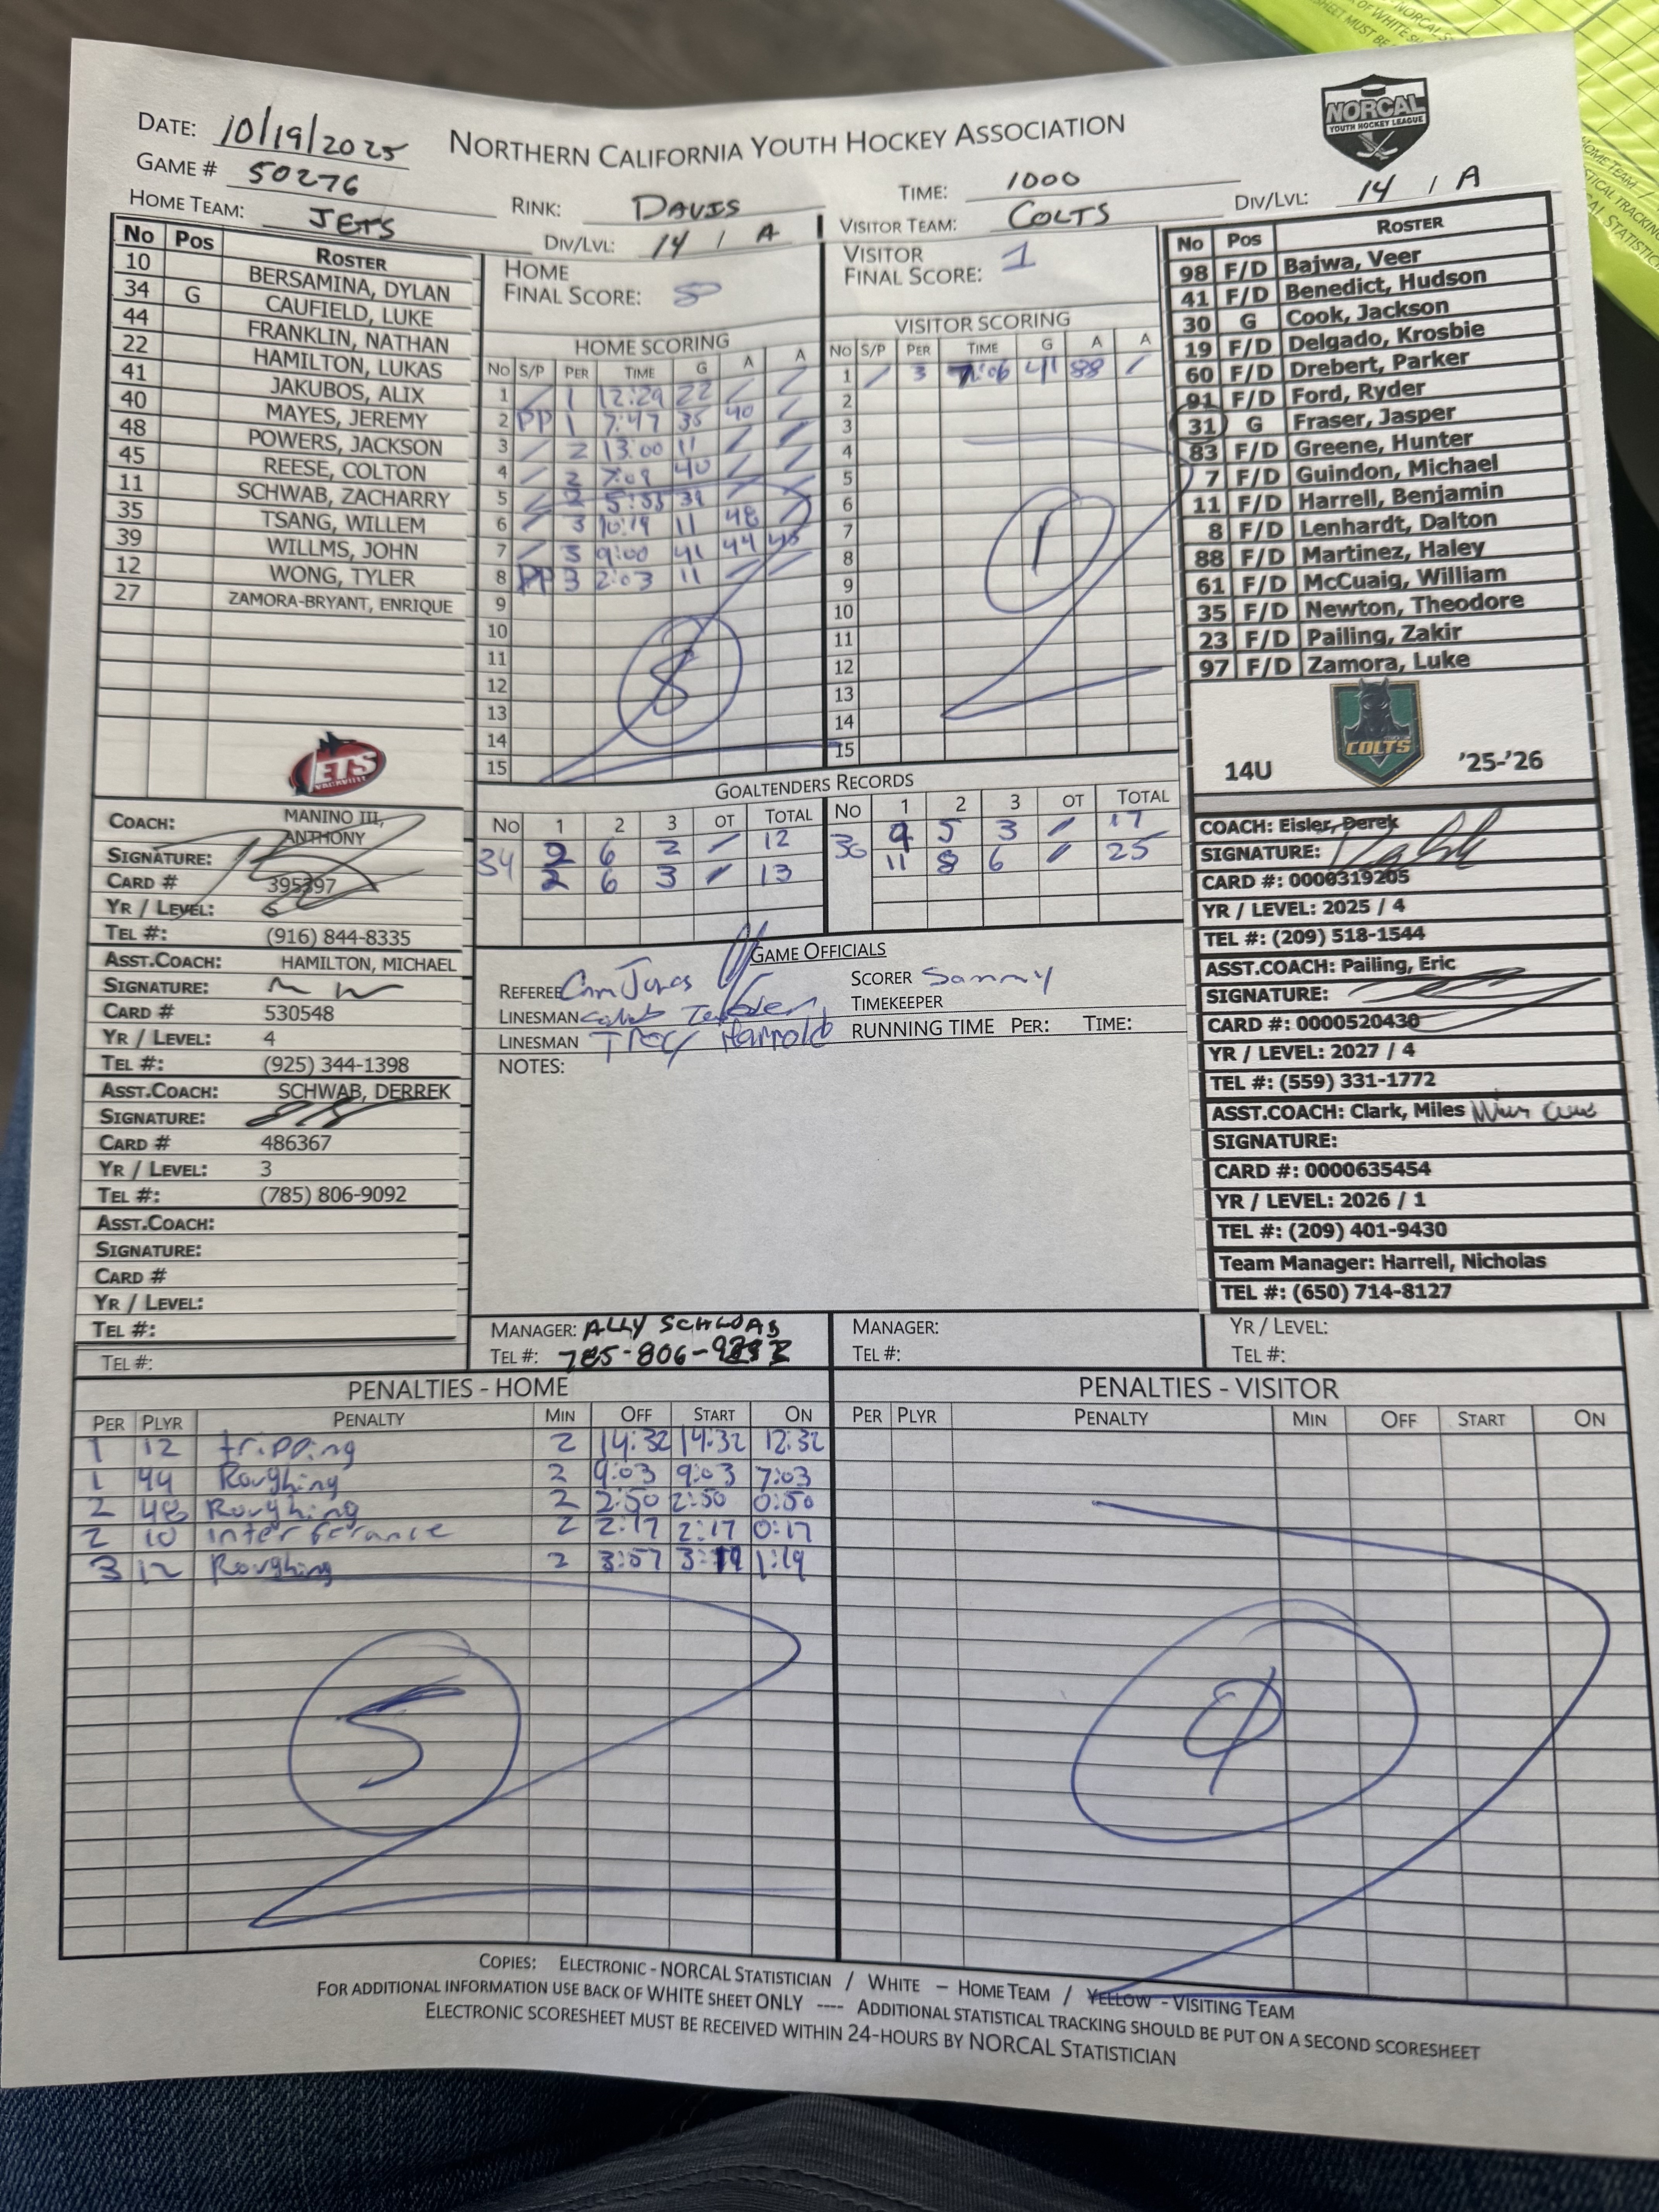 DATE: 10/19/2025
NORTHERN CALIFORNIA YOUTH HOCKEY ASSOCIATION
NORCAL
YOUTH HOCKEY LEAGUE
GAME # 50276
RINK: DAVIS
TIME: 1000
DIV/LVL: 14 / A
HOME TEAM: JETS
DIV/LVL: 14 / A
VISITOR TEAM: COLTS
No Pos ROSTER
10 BERSAMINA, DYLAN
34 G CAUFIELD, LUKE
44 FRANKLIN, NATHAN
22 HAMILTON, LUKAS
41 JAKUBOS, ALIX
40 MAYES, JEREMY
48 POWERS, JACKSON
45 REESE, COLTON
11 SCHWAB, ZACHARRY
35 TSANG, WILLEM
39 WILLMS, JOHN
12 WONG, TYLER
27 ZAMORA-BRYANT, ENRIQUE
JETS
HOME
FINAL SCORE: 8
VISITOR
FINAL SCORE: 1
HOME SCORING
No S/P PER TIME G A A
1 / 1 12:29 22 / /
2 PP 1 7:47 35 40 /
3 / 2 13:00 11 / /
4 / 2 7:09 40 / /
5 / 2 5:53 39 / /
6 / 3 10:19 11 48 /
7 / 3 9:00 41 44 45
8 PP 3 2:03 11 / /
9
10
11
12
13
14
15
8
VISITOR SCORING
No S/P PER TIME G A A
1 / 3 7:06 41 88 /
2
3
4
5
6
7
8
9
10
11
12
13
14
15
1
No Pos ROSTER
98 F/D Bajwa, Veer
41 F/D Benedict, Hudson
30 G Cook, Jackson
19 F/D Delgado, Krosbie
60 F/D Drebert, Parker
91 F/D Ford, Ryder
31 G Fraser, Jasper
83 F/D Greene, Hunter
7 F/D Guindon, Michael
11 F/D Harrell, Benjamin
8 F/D Lenhardt, Dalton
88 F/D Martinez, Haley
61 F/D McCuaig, William
35 F/D Newton, Theodore
23 F/D Pailing, Zakir
97 F/D Zamora, Luke
14U COLTS '25-'26
GOALTENDERS RECORDS
No 1 2 3 OT TOTAL
34 2 6 2 / 12
2 6 3 / 13
No 1 2 3 OT TOTAL
30 9 5 3 / 17
11 8 6 / 25
COACH: MANINO III, ANTHONY
SIGNATURE:
CARD # 395397
YR / LEVEL: 5
TEL #: (916) 844-8335
ASST.COACH: HAMILTON, MICHAEL
SIGNATURE:
CARD # 530548
YR / LEVEL: 4
TEL #: (925) 344-1398
ASST.COACH: SCHWAB, DERREK
SIGNATURE:
CARD # 486367
YR / LEVEL: 3
TEL #: (785) 806-9092
ASST.COACH:
SIGNATURE:
CARD #
YR / LEVEL:
TEL #:
TEL #:
GAME OFFICIALS
REFEREE
LINESMAN
LINESMAN Harrold
SCORER Sammy
TIMEKEEPER
RUNNING TIME PER: TIME:
NOTES:
COACH: Eisler, Derek
SIGNATURE:
CARD #: 0000319205
YR / LEVEL: 2025 / 4
TEL #: (209) 518-1544
ASST.COACH: Pailing, Eric
SIGNATURE:
CARD #: 0000520430
YR / LEVEL: 2027 / 4
TEL #: (559) 331-1772
ASST.COACH: Clark, Miles
SIGNATURE:
CARD #: 0000635454
YR / LEVEL: 2026 / 1
TEL #: (209) 401-9430
Team Manager: Harrell, Nicholas
TEL #: (650) 714-8127
MANAGER: ALLY SCHWAB
TEL #: 785-806-
MANAGER:
TEL #:
YR / LEVEL:
TEL #:
PENALTIES - HOME
PER PLYR PENALTY MIN OFF START ON
1 12 tripping 2 14:32 14:32 12:32
1 44 Roughing 2 9:03 9:03 7:03
2 48 Roughing 2 2:50 2:50 0:50
2 10 interferance 2 2:17 2:17 0:17
3 12 Roughing 2 3:57 3:19 1:19
5
PENALTIES - VISITOR
PER PLYR PENALTY MIN OFF START ON
0
COPIES: ELECTRONIC - NORCAL STATISTICIAN / WHITE – HOME TEAM / YELLOW - VISITING TEAM
FOR ADDITIONAL INFORMATION USE BACK OF WHITE SHEET ONLY ---- ADDITIONAL STATISTICAL TRACKING SHOULD BE PUT ON A SECOND SCORESHEET
ELECTRONIC SCORESHEET MUST BE RECEIVED WITHIN 24-HOURS BY NORCAL STATISTICIAN